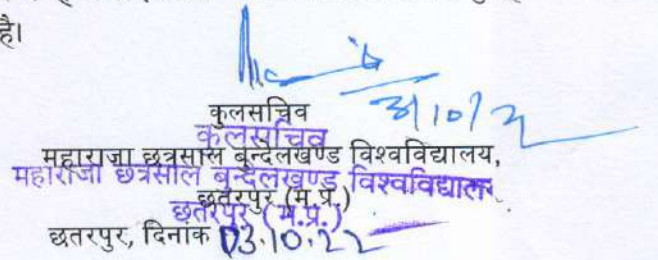 है।
3/10/22
कुलसचिव
कुलसचिव
महाराजा छत्रसाल बुन्देलखण्ड विश्वविद्यालय,
महाराजा छत्रसाल बुन्देलखण्ड विश्वविद्यालय
छतरपुर (म.प्र.)
छतरपुर (म.प्र.)
छतरपुर, दिनांक 03.10.22